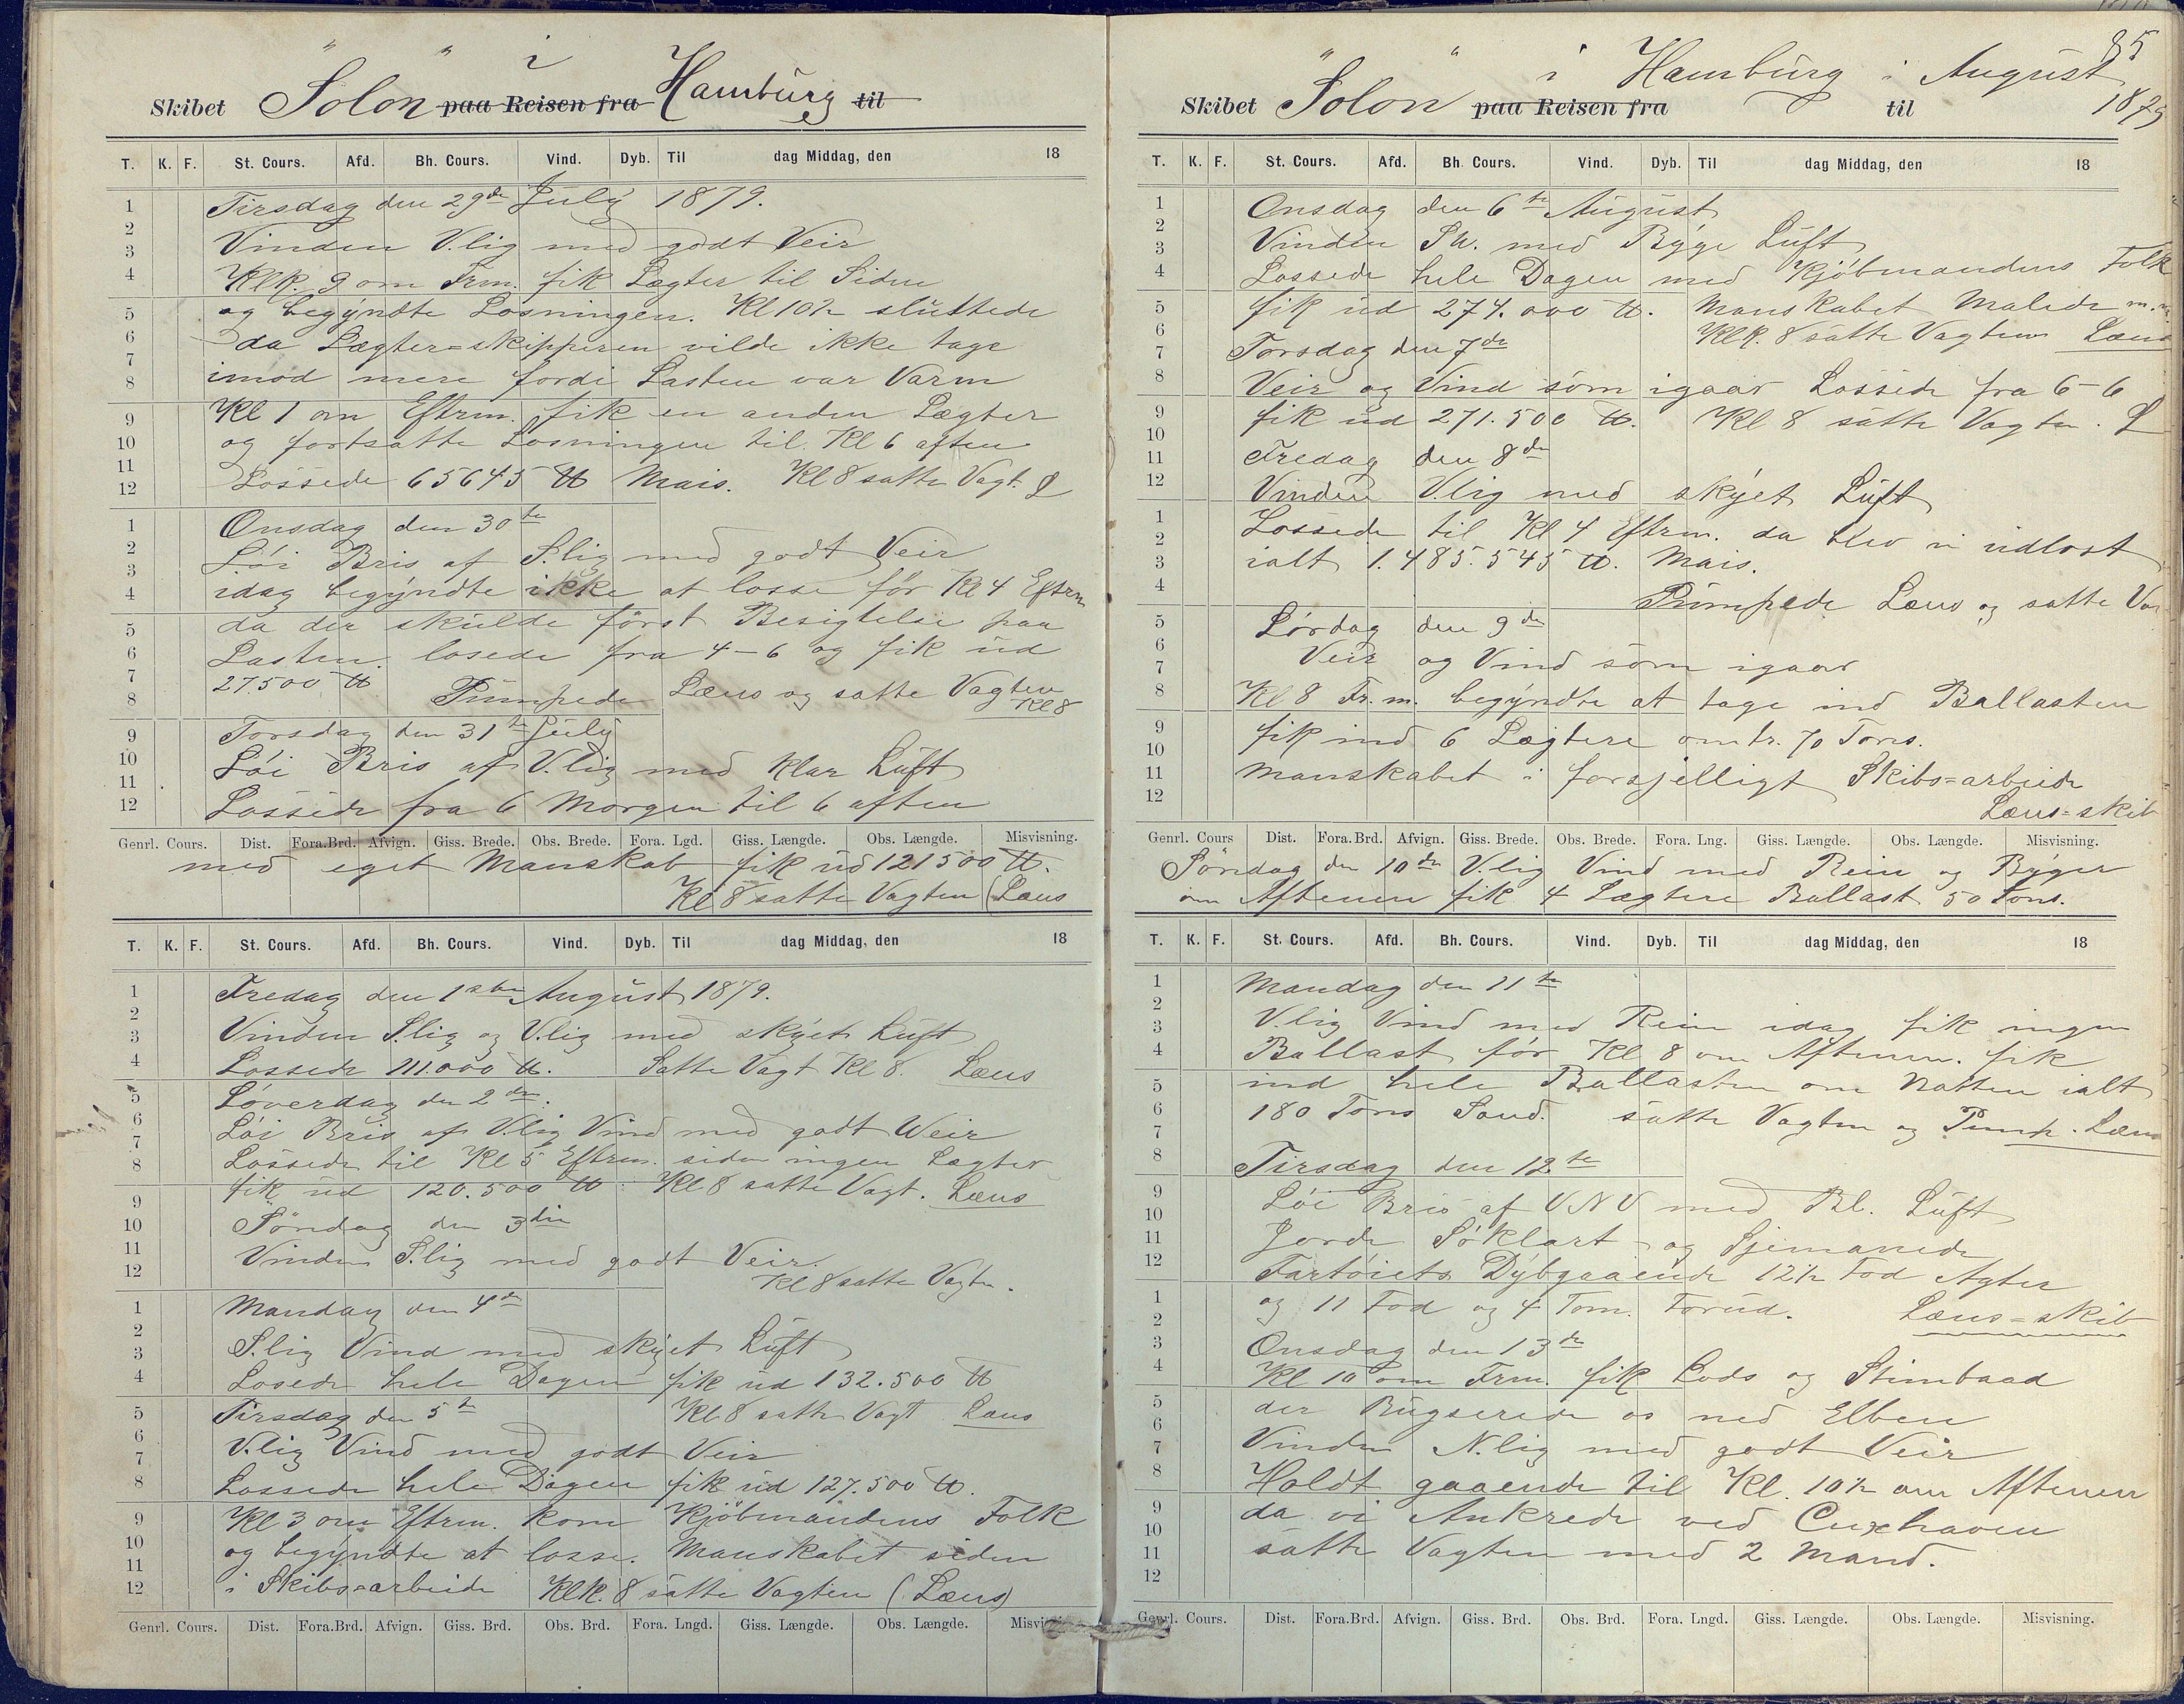 Skibet "Solon" paa Reisen fra i Hamburg til
T. K. F. St. Cours. Afd. Bh. Cours. Vind. Dyb. Til dag Middag, den 18
Tirsdag den 29de July 1879.
Vinden V.lig med godt Veir
Klk. 9 om Frm. fik Lægter til Siden
og begyndte Losningen. Kl 10½ sluttede
da Lægter=skipperen vilde ikke tage
imod mere fordi Lasten var Varm
Kl 1 om Eftrm. fik en anden Lægter
og fortsatte Losningen til Kl 6 aften
Lossede 65645 ℔ Mais. Kl 8 satte Vagt. L
Onsdag den 30te
Löi Bris af S.lig med godt Veir
idag begyndte ikke at losse för Kl 4 Eftrm
da der skulde först Besigtelse paa
Lasten. losede fra 4-6 og fik ud
27.500 ℔ Pumpede Læns og satte Vagten
Kl 8
Torsdag den 31te July
Löi Bris af V.lig med klar Luft
Lossede fra 6 Morgen til 6 aften
Genrl. Cours. Dist. Fora.Brd. Afvign. Giss. Brede. Obs. Brede. Fora. Lgd. Giss. Længde. Obs. Længde. Misvisning.
med eget Manskab fik ud 121500 ℔.
Kl 8 satte Vagten (Læns
T. K. F. St. Cours. Afd. Bh. Cours. Vind. Dyb. Til dag Middag, den 18
Fredag den 1ste August 1879.
Vinden S.lig og V.lig med skyet Luft
Lossede 111.000 ℔. Satte Vagt Kl 8. Læns
Löverdag den 2den.
Löi Bris af V.lig Vind med godt Weir
Lossede til Kl 5 Eftrm. siden ingen Lægter
fik ud 120.500 ℔ Kl 8 satte Vagt. Læns
Söndag den 3die
Vinden S.lig med godt Veir.
Kl 8 satte Vagten.
Mandag den 4de
S.lig Vind med skyet Luft
Losede hele Dagen fik ud 132.500 ℔
Tirsdag den 5te Kl 8 satte Vagt Læns
V.lig Vind med godt Veir
Lossede hele Dagen fik ud 127.500 ℔.
Kl 3 om Eftrm. kom Kjöbmandens Folk
og begyndte at losse. Manskabet siden
i Skibs=arbeide Klk. 8 satte Vagten (Læns)
Genrl. Cours. Dist. Fora.Brd. Afvign. Giss. Brd. Obs. Brd. Fora. Lngd. Giss. Længde. Obs. Længde.
85
Skibet "Solon" paa Reisen fra i Hamburg i August til 1879
T. K. F. St. Cours. Afd. Bh. Cours. Vind. Dyb. Til dag Middag, den 18
Onsdag den 6te August
Vinden SW. med Byge Luft
Lossede hele Dagen med Kjöbmandens Folk
fik ud 274.000 ℔. Manskabet Malede m.m.
Klk. 8 satte Vagten Læns
Torsdag den 7de
Veir og Vind som igaar Lossede fra 6-6
fik ud 271.500 ℔. Kl 8 satte Vagten. L
Fredag den 8de
Vinden V.lig med skyet Luft
Lossede til Kl 4 Eftrm. da blev vi udlost
ialt 1.485.545 ℔. Mais.
Pumpede Læns og satte Va
Lördag den 9de
Veir og Vind som igaar
Kl 8 Fr. m. begyndte at tage ind Ballasten
fik ind 6 Lægtere omtr. 70 Tons.
Manskabet i forsjelligt Skibs=arbeide
Læns=skib
Genrl. Cours Dist. Fora.Brd. Afvign. Giss. Brede. Obs. Brede. Fora. Lng. Giss. Længde. Obs. Længde. Misvisning.
Söndag den 10de V.lig Vind med Rein og Byger
om Aftenen fik 4 Lægtere Ballast 50 Tons.
T. K. F. St. Cours. Afd. Bh. Cours. Vind. Dyb. Til dag Middag, den 18
Mandag den 11te
V.lig Vind med Rein idag fik ingen
Ballast för Kl 8 om Aftenen. fik
ind hele Ballasten om Natten ialt
180 Tons Sand. satte Vagten og Pump. Læns
Tirsdag den 12te
Löi Bris af VNV med Bl. Luft
Jorde Söklart og Sjemanede
Fartöiets Dybgaaende 12½ Fod Agter
og 11 Fod og 4 Tom. Forud. Læns=skib
Onsdag den 13de
Kl 10 om Frm. fik Lods og Stimbaad
der Bugserede os ned Elben
Vinden N.lig med godt Veir
Holdt gaaende til Kl. 10½ om Aftenen
da vi Ankrede ved Cuxhaven
satte Vagten med 2 Mand.
Genrl. Cours. Dist. Fora.Brd. Afvign. Giss. Brd. Obs. Brd. Fora. Lngd. Giss. Længde. Obs. Længde. Misvisning.